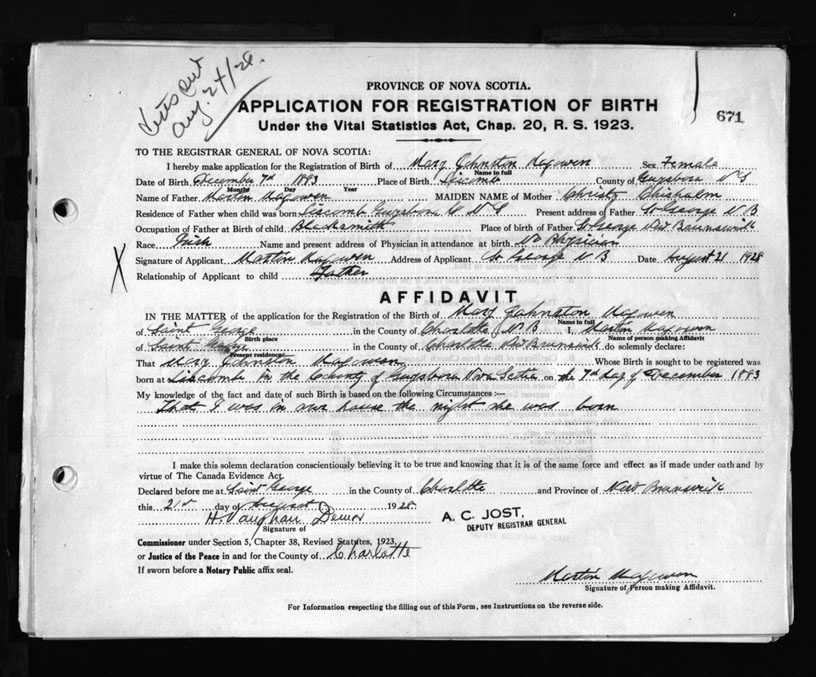 Aug. 24/28.
PROVINCE OF NOVA SCOTIA.
APPLICATION FOR REGISTRATION OF BIRTH
671
Under the Vital Statistics Act, Chap. 20, R. S. 1923.
TO THE REGISTRAR GENERAL OF NOVA SCOTIA:
I hereby make application for the Registration of Birth of Mary Johnston Magowen Sex Female
Name in full
Date of Birth December 7th 1883 Place of Birth Liscomb County of Guysboro N S
Month Day Year
Name of Father Martin Magowen MAIDEN NAME of Mother Christy Chisholm
Residence of Father when child was born Liscomb Guysboro Co N S Present address of Father St George N B
Occupation of Father at Birth of child Blacksmith Place of birth of Father St George New Brunswick
Race Irish Name and present address of Physician in attendance at birth No Physician
Signature of Applicant Martin Magowen Address of Applicant St George N B Date August 21 1928
Relationship of Applicant to child Father
X
AFFIDAVIT
IN THE MATTER of the application for the Registration of the Birth of Mary Johnston Magowen
Name in full
of Saint George in the County of Charlotte N B I, Martin Magowen
Birth place Name of person making Affidavit
of Saint George in the County of Charlotte New Brunswick do solemnly declare:
Present residence
That Mary Johnston Magowen Whose Birth is sought to be registered was
born at Liscomb in the County of Guysboro Nova Scotia on the 7th day of December 1883
My knowledge of the fact and date of such Birth is based on the following Circumstances :—
That I was in our house the night she was born
I make this solemn declaration conscientiously believing it to be true and knowing that it is of the same force and effect as if made under oath and by
virtue of The Canada Evidence Act.
Declared before me at Saint George in the County of Charlotte and Province of New Brunswick
this 21st day of August 1928
H. Vaughan Dewar
Signature of
A. C. JOST,
DEPUTY REGISTRAR GENERAL
Commissioner under Section 5, Chapter 38, Revised Statutes, 1923,
or Justice of the Peace in and for the County of Charlotte
If sworn before a Notary Public affix seal.
Martin Magowen
Signature of Person making Affidavit.
For Information respecting the filling out of this Form, see Instructions on the reverse side.